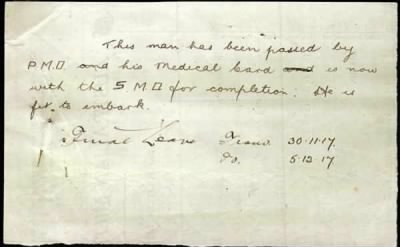 This man has been passed by
P.M.O and his Medical Card and is now
with the S M O for completion. He is
fit to embark.
Final Leave From 30·11·17.
To. 5·12·17.